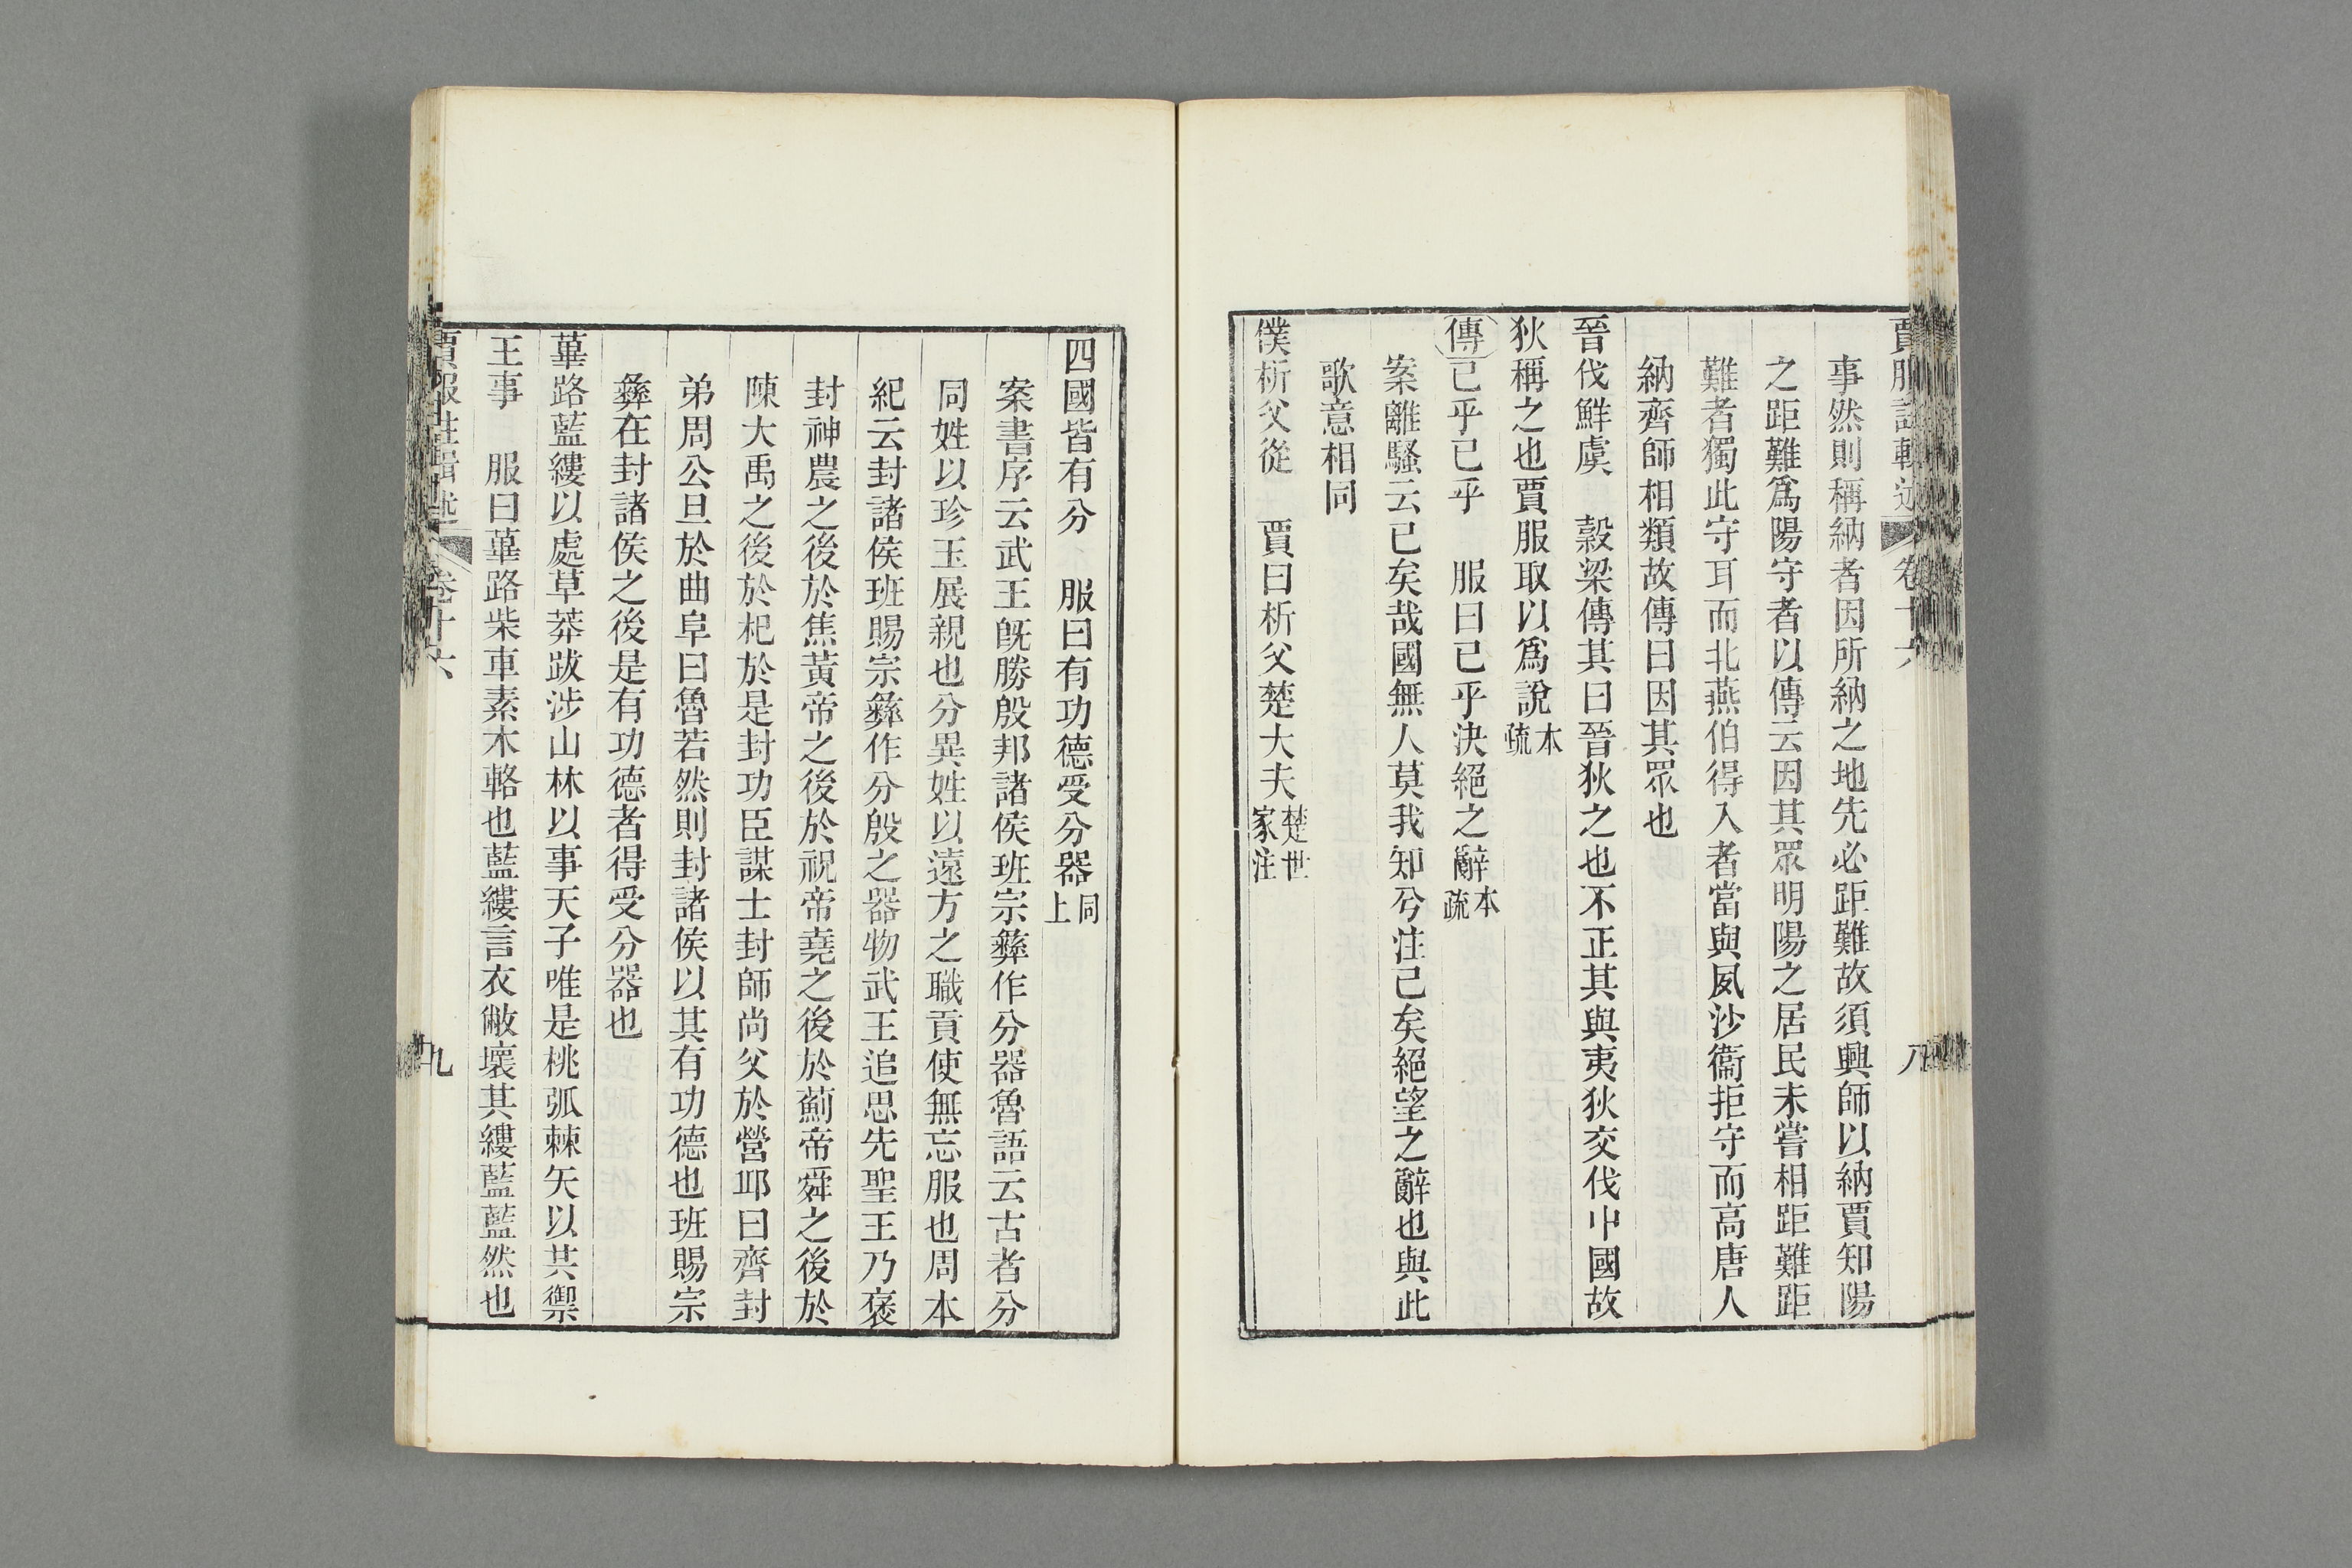 賈服註輯述 卷十六 八
事然則稱納者因所納之地先必距難故須興師以納賈知陽
之距難爲陽守者以傳云因其眾明陽之居民未嘗相距難距
難者獨此守耳而北燕伯得入者當與夙沙衞拒守而高唐人
納齊師相類故傳曰因其眾也
晉伐鮮虞 穀梁傳其曰晉狄之也不正其與夷狄交伐中國故
狄稱之也賈服取以爲說本疏
傳已乎已乎 服曰已乎決絕之辭本疏
案離騷云已矣哉國無人莫我知兮注已矣絕望之辭也與此
歌意相同
僕析父從 賈曰析父楚大夫楚世家注
四國皆有分 服曰有功德受分器同上
案書序云武王旣勝殷邦諸侯班宗彝作分器魯語云古者分
同姓以珍玉展親也分異姓以遠方之職貢使無忘服也周本
紀云封諸侯班賜宗彝作分殷之器物武王追思先聖王乃褒
封神農之後於焦黃帝之後於祝帝堯之後於薊帝舜之後於
陳大禹之後於杞於是封功臣謀士封師尚父於營邱曰齊封
弟周公旦於曲阜曰魯若然則封諸侯以其有功德也班賜宗
彝在封諸侯之後是有功德者得受分器也
蓽路藍縷以處草莽跋涉山林以事天子唯是桃弧棘矢以共禦
王事 服曰蓽路柴車素木輅也藍縷言衣敝壞其縷藍藍然也
賈服註輯述 卷十六 九